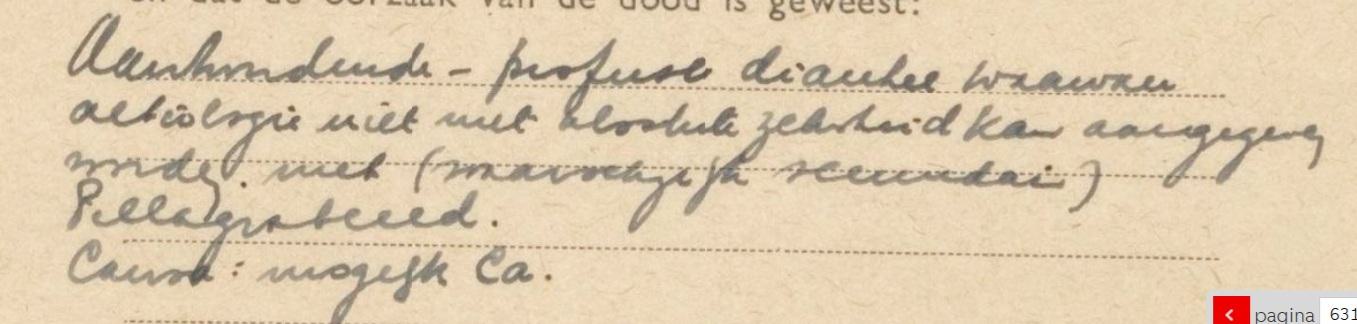 en dat de oorzaak van de dood is geweest:
Aanhoudende - profuse diarrhee waarvan
aetiologie niet met absolute zekerheid kan aangegeven
worden. met (waarschijnlijk secundair)
Pellagrabeeld.
Causa: mogelijk Ca.
pagina 631